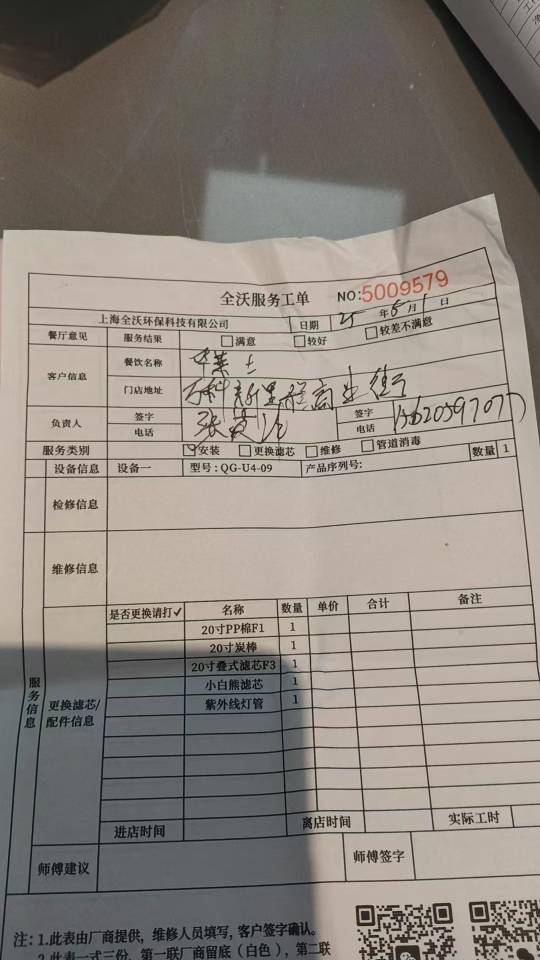 全沃服务工单 NO:5009579
上海全沃环保科技有限公司 日期 25年6月1日
餐厅意见 服务结果 满意 较好 较差不满意
客户信息 餐饮名称 华莱士
门店地址 万科新里程商业街
负责人 签字 电话 张 签字 电话
服务类别 ✓安装 更换滤芯 维修 管道消毒 数量 1
设备信息 设备一 型号:QG-U4-09 产品序列号:
检修信息
维修信息
服务信息
更换滤芯/配件信息
是否更换请打✓ 名称 数量 单价 合计 备注
20寸PP棉F1 1
20寸炭棒 1
20寸叠式滤芯F3 1
小白熊滤芯 1
紫外线灯管 1
进店时间 离店时间 实际工时
师傅建议 师傅签字
注:1.此表由厂商提供,维修人员填写,客户签字确认。
2.此表一式三份,第一联厂商留底(白色),第二联